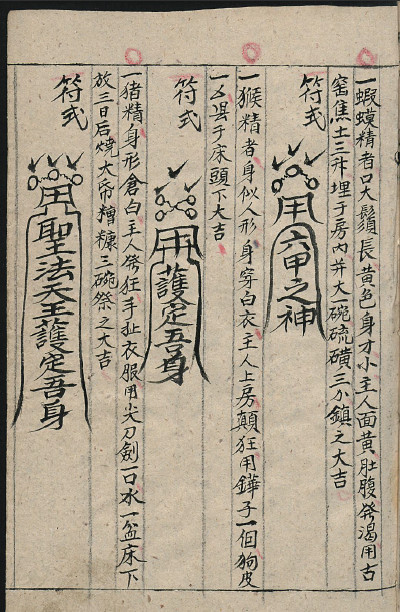 一蝦蟆精者口大鬚長黃色身才小主人面黃肚腹發渴用古
窑焦土三升埋于房內并大一碗硫磺三分鎮之大吉
符式
用六甲之神
一猴精者身似人形身穿白衣主人上房顛狂用鏵子一個狗皮
一 于床頭下大吉
符式
用護定吾身
一猪精身形倉白主人發狂手扯衣服用尖刀劍一口水一盆床下
放三日后燒大帋糟糠三碗祭之大吉
符式
用聖法天王護定吾身